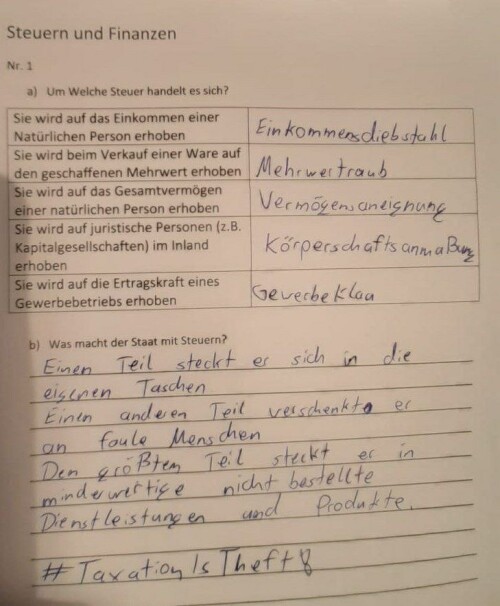 Steuern und Finanzen
Nr. 1
a) Um Welche Steuer handelt es sich?
Sie wird auf das Einkommen einer
Natürlichen Person erhoben
Einkommensdiebstahl
Sie wird beim Verkauf einer Ware auf
den geschaffenen Mehrwert erhoben
Mehrwertraub
Sie wird auf das Gesamtvermögen
einer natürlichen Person erhoben
Vermögensaneignung
Sie wird auf juristische Personen (z.B.
Kapitalgesellschaften) im Inland
erhoben
Körperschaftsanmaßung
Sie wird auf die Ertragskraft eines
Gewerbebetriebs erhoben
Gewerbeklau
b) Was macht der Staat mit Steuern?
Einen Teil steckt er sich in die
eigenen Taschen
Einen anderen Teil verschenkt er
an faule Menschen
Den größten Teil steckt er in
minderwertige nicht bestellte
Dienstleistungen und Produkte.
#TaxationIsTheft